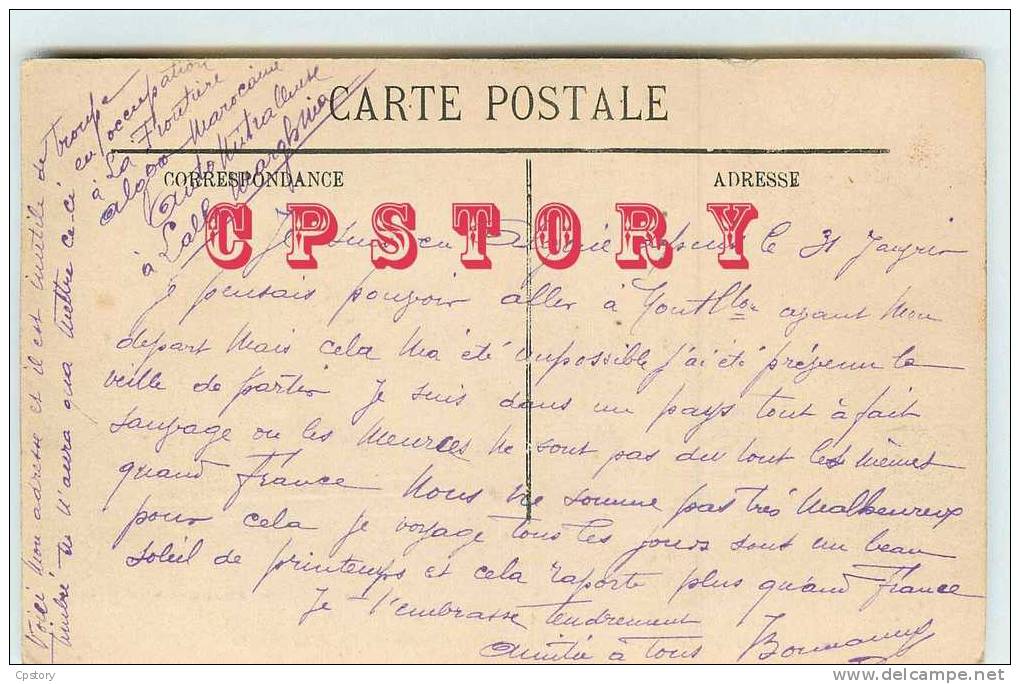 CARTE POSTALE
CORRESPONDANCE
ADRESSE
CPSTORY
Je suis en Algerie depuis le 31 Janvier
je pensais pouvoir aller à avant mon
depart mais cela ma été impossible j'ai été prévenu la
veille de partir Je suis dans un pays tout à fait
sauvage ou les meurces ne sont pas du tout les mêmes
quand France Nous ne somme pas très malheureux
pour cela je voyage tous les jours sont un beau
soleil de printemps et cela raporte plus quand France
Je t'embrasse tendrement
amitié à tous
Voici mon adresse et il est inutile de
timbré tu n'aura qua mettre ce-ci
troupe
en occupation
à La Frontière
algero Marocaine
à Lalla Marghnia
Cpstory
www.delcampe.net